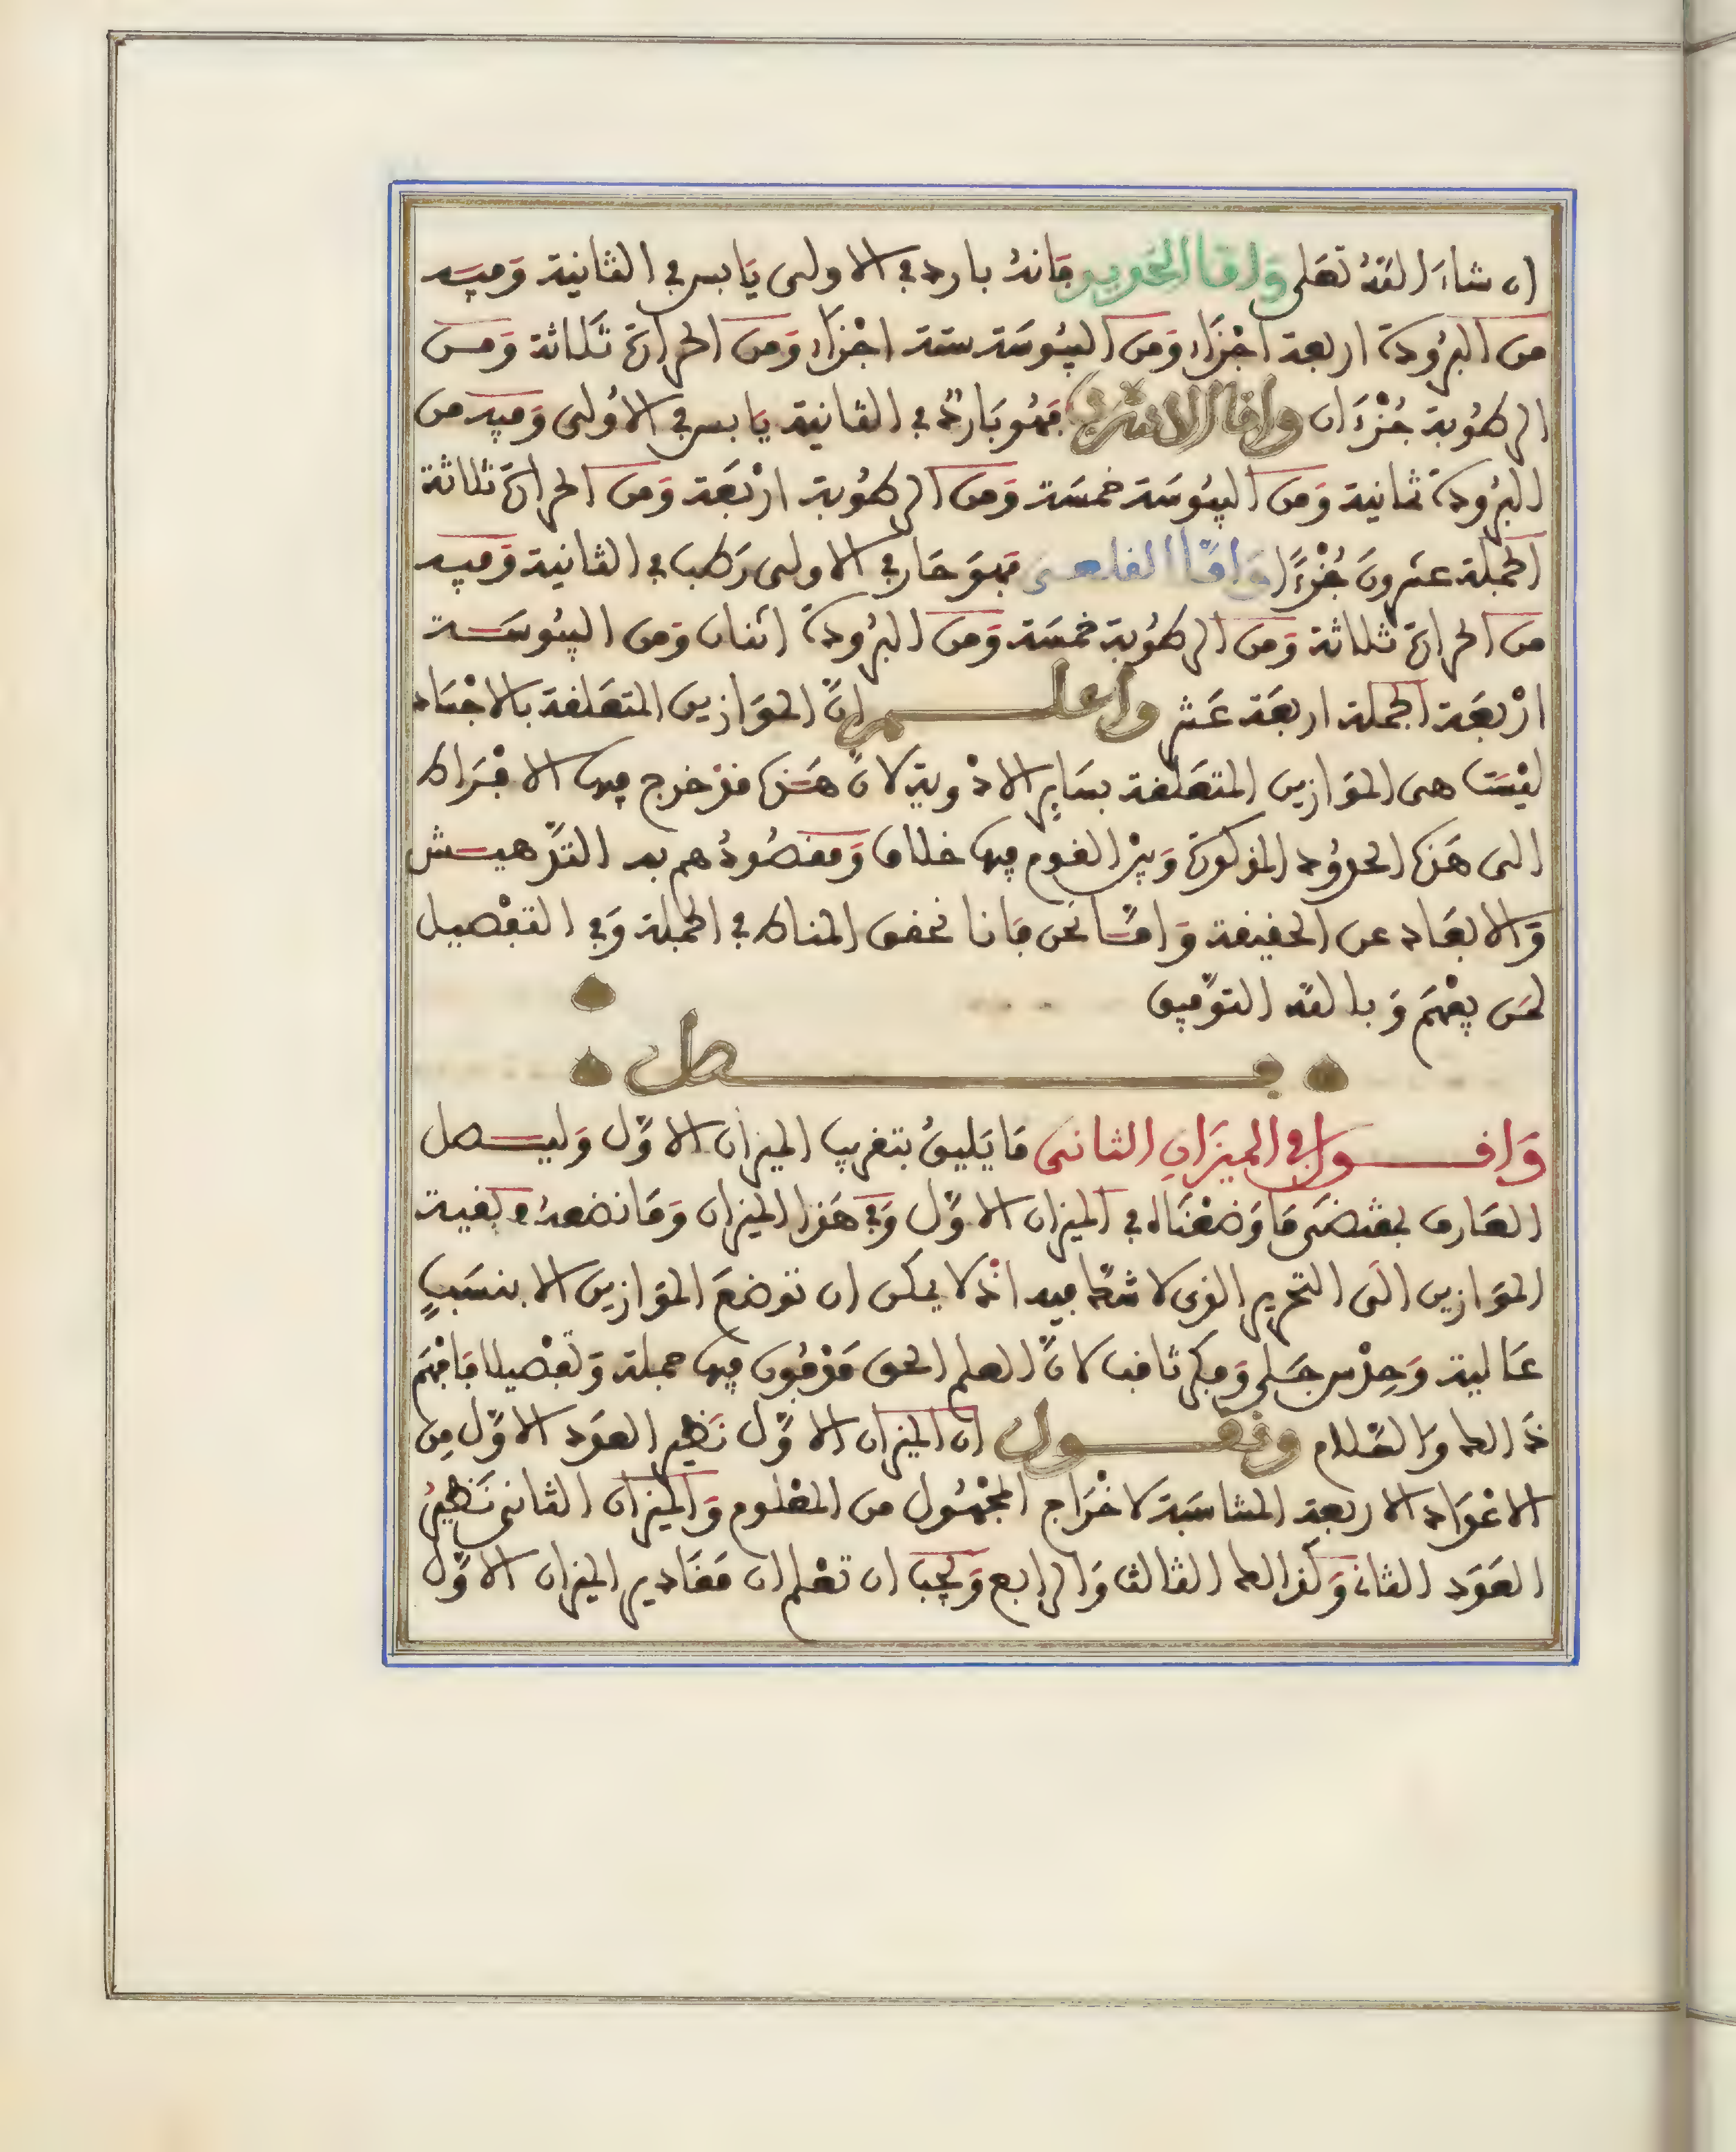 ان شاءَ اللّهُ تعَلى وَامّا الحَديد فَانهُ بارد في الاولى يَابس في الثانية وَفيـه
من البرُودة اربعة اجْزَاء وَمن اليبُوسَة ستة اجْزَاء وَمن الحرارة ثَلاثة وَمـن
الرطوُبة جُزْءَان وامّا الاسْرب فهُو بَاردٌ في الثانية يَابس في الاُولى وَفيه من
البرُودة ثمانية وَمن اليبُوسَة خمسَة وَمن الرطُوبة ارْبَعَة وَمن الحرارة ثلاثة
الجملة عشرونَ جُزْءًا وَامّا القلعى فهوَ حَار في الاولى رَطب في الثانية وَفيه
من الحرارة ثلاثة وَمن الرطوُبة خمسَة وَمن البرُودة اثنان وَمن اليبُوسَـة
ارْبعَة الجملة اربعَة عَشر واعلـــم انّ الموَازين المتعَلقة بالاجْسَاد
ليْسَت هى الموَازين المتعَلقة بسَاير الادْوية لانّ هَـذه قدْ خرج فيها الافْرَاط
الى هَذه الحدوُد المذكورة وَبيْن القوم فيها خلاف وَمقصُودُهم به التدّهيـش
وَالابعَاد عن الحقيقة وَامّـا نحن فانا نحقق المناط في الجملة وَفي التفْصيل
لمن يفْهَم وَبا للّه التوْفيق
فـــــــصل
وَاقــــول في الميزَانِ الثانى مَا يَليقُ بتقريب الميزان الاوّل وَليـصل
العَارف بمقتضى مَا وَضعْنَاه في الميزان الاوّل وَفي هَذا الميزان وَمَا نضعهُ في بقية
الموَازين الَى التحرير الذى لا شكّ فيه اذْ لا يمكن ان توضعَ الموَازين الا بنسَبٍ
عَالية وَحدْس جَلى وَفكر ثاقب لانّ العلم الحق مَدْفُون فيها جملة وَتفصيلا فَافهَم
ذَالك وَالسّلام ونقــــول ان الميزان الاوّل نَظير العدَد الاوّل مِن
الاعْدَاد الاربعة المتنَاسَبة لاخْرَاج المجْهُول من المعْلوم وَالميزان الثانى نَظيرُ
العَدَد الثانى وَكذالك الثالث وَالرابع وَيجب ان تعْلم ان مقَادير الميزان الاوّل